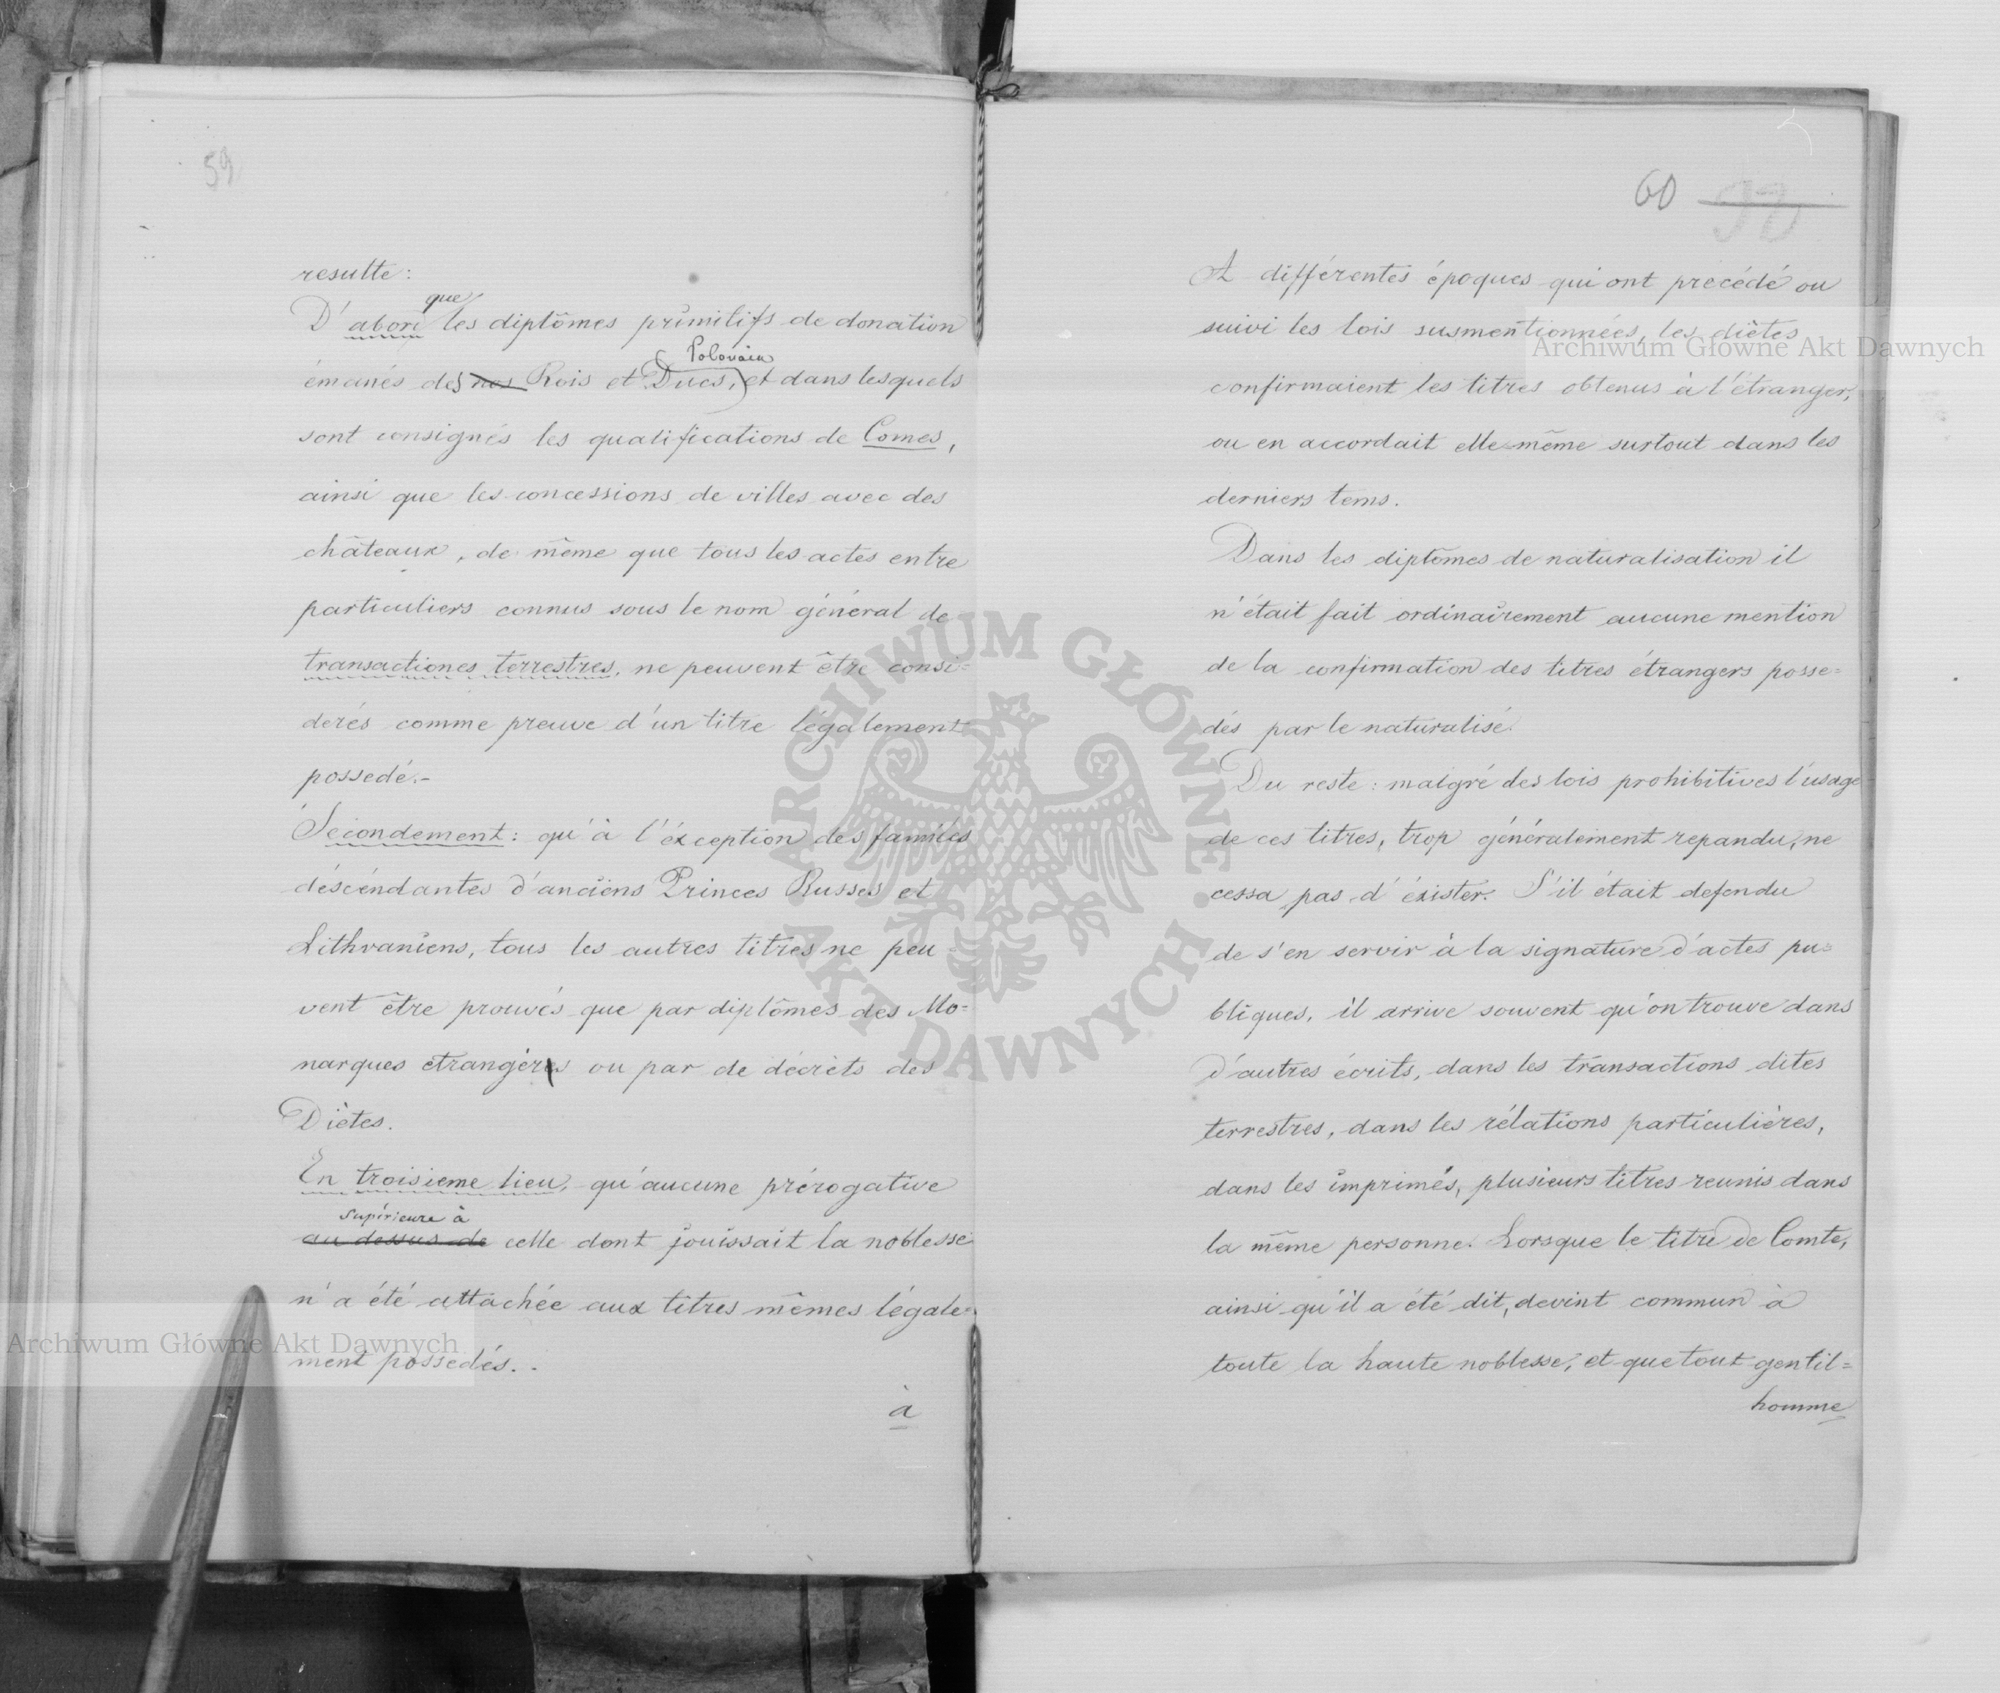 59
resulte:
D'abord que les diplômes primitifs de donation
émanés des nos Rois et Ducs, Polonais et dans lesquels
sont consignés les qualifications de Comes,
ainsi que les concessions de villes avec des
châteaux, de même que tous les actes entre
particuliers connus sous le nom général de
transactiones terrestres, ne peuvent être consi=
derés comme preuve d'un titre légalement
possedé.-
Secondement: qu'à l'éxception des familes
déscéndantes d'anciens Princes Russes et
Lithvaniens, tous les autres titres ne peu=
vent être prouvés que par diplômes des Mo=
narques etrangères ou par de décrèts des
Diètes.
En troisieme lieu, qu'aucune prérogative
supérieure à
au dessus de celle dont jouissait la noblesse
n'a été attachée aux titres mêmes légale=
ment possedés.-
à
60 90
A différentes époques qui ont precédé ou
suivi les lois susmentionnées, les diètes
confirmaient les titres obtenus à l'étranger,
ou en accordait elle-même surtout dans les
derniers tems.
Dans les diplômes de naturalisation il
n'était fait ordinairement aucune mention
de la confirmation des titres étrangers posse=
dés par le naturalisé.
Du reste: malgré des lois prohibitives l'usage
de ces titres, trop généralement repandu, ne
cessa pas d'éxister. S'il était defendu
de s'en servir à la signature d'actes pu=
bliques, il arrive souvent qu'on trouve dans
d'autres écrits, dans les transactions dites
terrestres, dans les rélations particulières,
dans les imprimés, plusieurs titres reunis dans
la même personne. Lorsque le titre de Comte,
ainsi qu'il a été dit, devint commun à
toute la haute noblesse, et que tout gentil=
homme
Archiwum Główne Akt Dawnych
Archiwum Główne Akt Dawnych
ARCHIWUM GŁÓWNE · AKT DAWNYCH ·